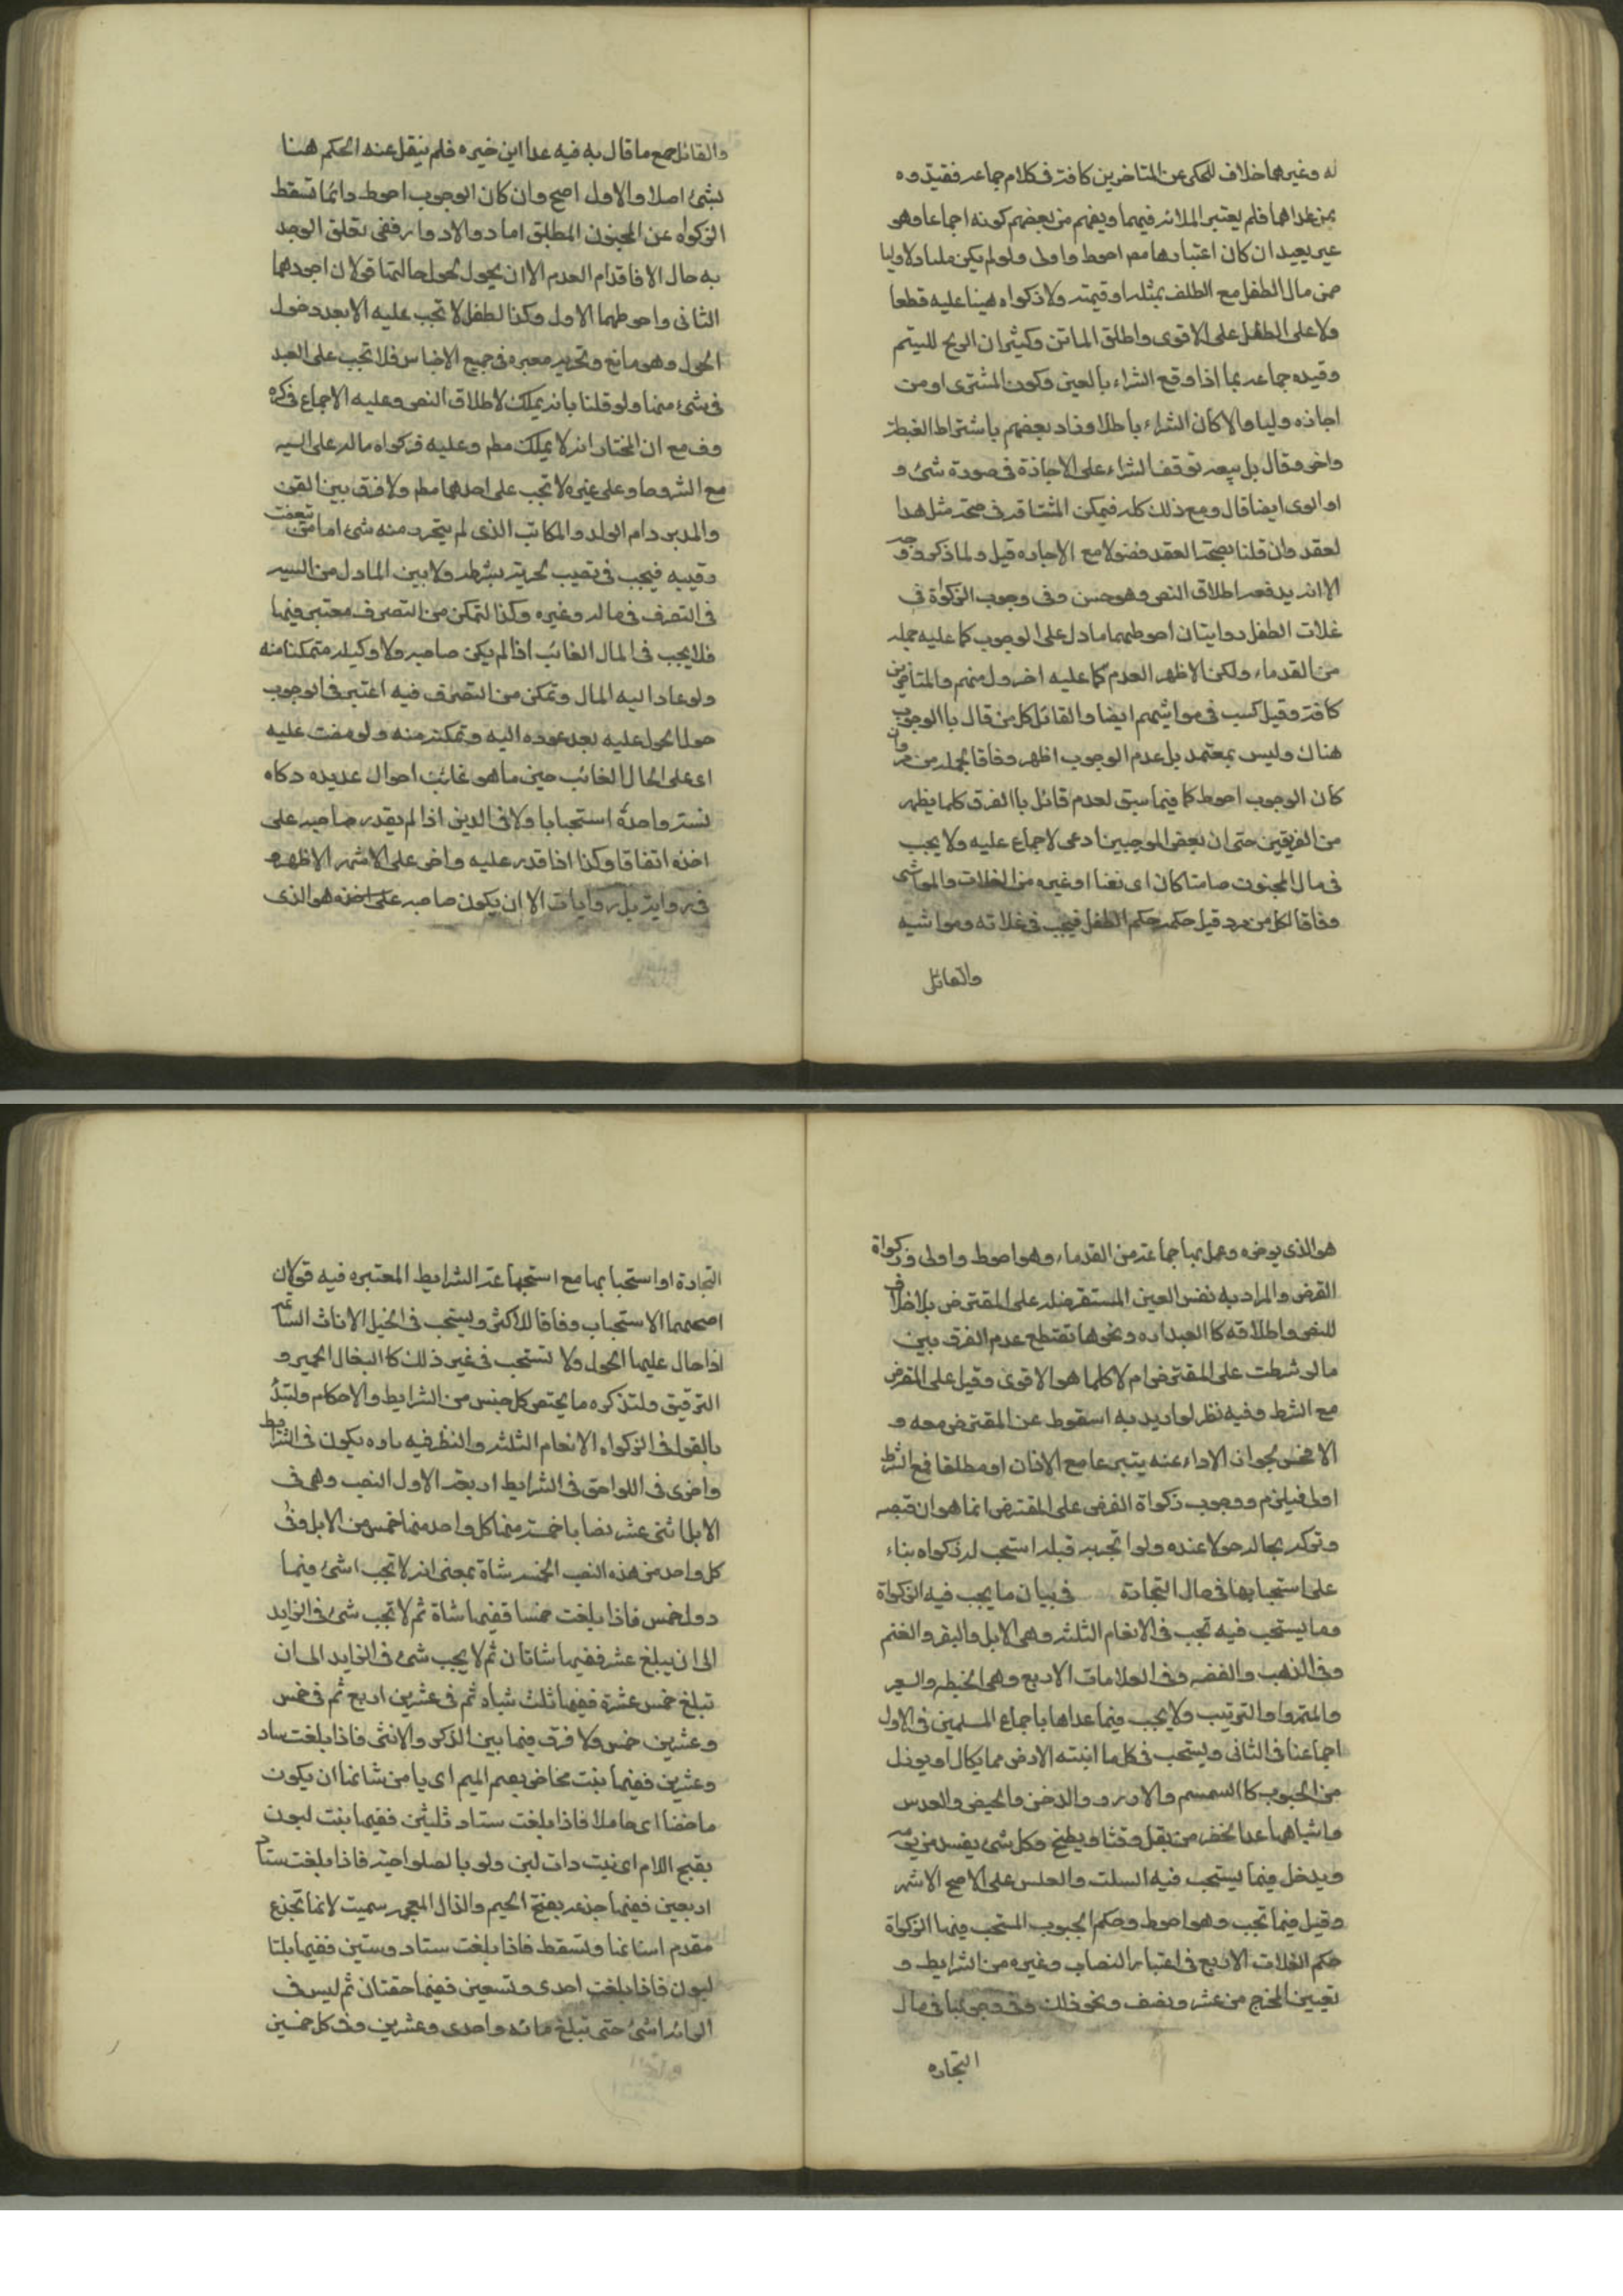 له وغيرهما خلاف للمحكى عن المتاخرين كافة فى كلام جماعه فقيدوه
بمن عداهما فلم يعتبر الملائه فيهما ويفهم من بعضهم كونه اجماعا وهو
غير بعيد ان كان اعتبارها مع احوط واولى ولو لم يكن مليا ولا وليا
ضمن مال الطفل مع التلف بمثله او قيمته ولا زكواه هينا عليه قطعا
ولا على الطفل على الاقوى واطلق الماتن وكثيران الربح لليتيم
وقيده جماعه بما اذا وقع الشراء بالعين وكون المشترى او من
اجازه وليا والا كان الشراء باطلا وزاد بعضهم باشتراط الغبطه
واخر وقال بل يبعه توقف الشراء على الاجازة فى صورة شئ و
او الوى ايضا قال ومع ذلك كله فيمكن المناقة فى صحة مثل هذا
لعقد وان قلنا بصحة العقد فضولا مع الاجازه قيل ولما ذكره وجه
الا انه يدفعه اطلاق النص وهو حسن وفى وجوب الزكواة فى
غلات الطفل روايتان احوطهما مادل على الوجوب كما عليه جمله
من القدماء ولكن الاظهر العدم كما عليه اخرون منهم والمتاخرين
كافة وقيل تجب فى مواشيهم ايضا والقائل كل من قال بالوجوب
هناك وليس بمعتمد بل عدم الوجوب اظهر وفاقا لجمله من مر وان
كان الوجوب احوط كما فيما سبق لعدم قائل باالفرق كلما يظهر
من الفريقين حتى ان بعض الموجبين ادعى لاجماع عليه ولا يجب
فى مال المجنون صامتا كان اى نقدا او غيره من الغلات والمواشى
وفاقا لكل من مر وقيل حكمه حكم الطفل فيجب فى غلاته ومواشيه
والقائل
والقائل جمع ما قال به فيه عدا ابن حمزه فلم ينقل عنه الحكم هنا
بشئ اصلا والاول اصح وان كان الوجوب احوط وانما تسقط
الزكواه عن المجنون المطلق اما ذو الادوار ففى تعلق الوجوب
به حال الافاقة ام العدم الا ان يحول لحول حالتها قولان اجودهما
الثانى واحوطهما الاول وكذا لطفل لا تجب عليه الا بعد دخول
الحول وهو مانع وتحرير معبره فى جميع الاجناس فلا تجب على العبد
فى شئ منها ولو قلنا بانه يملك لاطلاق النص وعليه الاجماع فى كره
وف مع ان المختار انه لا يملك مطم وعليه فزكواه ماله على السيد
مع الشروط وعلى غيره لا تجب على احدهما مطم ولا فرق بين القن
والمدبر وام الولد والمكاتب الذى لم يتحرر منه شئ اما من تبعضت
رقيبه فيجب فى نصيب لحرية بشرطه ولا بين الماذون من السيد
فى التصرف فى ماله وغيره وكذا التمكن من التصرف معتبر فيها
فلا يجب فى المال الغائب اذا لم يكن صاحبه ولا وكيله متمكنا منه
ولو عاد اليه المال وتمكن من التصرف فيه اعتبر فى الوجوب
حول الحول عليه بعد عوده اليه وتمكنه منه ولو مضت عليه
اى على الحال الغائب حين ما هو غائب احوال عديده زكاه
لسنة واحدة استحبابا ولا فى الدين اذا لم يقدر صاحبه على
اخذه اتفاقا وكذا اذا قدر عليه واخر على الاشهر الاظهر و
فى رواية بل روايات الا ان يكون صاحبه على اخذه هو الذى
هو الذى يوخره وعمل بها جماعة من القدماء وهو احوط واولى وزكواة
القرض والمراد به نفس العين المستقرضه على المقترض بلا خلاف
للنص واطلاقه كا العباره ونحوها تقتطع عدم الفرق بين
مالو شرطت على المقترض ام لا كلما هو الاقوى وقيل على المقرض
مع الشرط وفيه نظر لو اريد به اسقوط عن المقترض معه و
الا محض لجواز الاداء عنه يتبرعا مع الاذن او مطلقا فمع الشرط
اولى فيلزم ووجوب زكواة القرض على المقترض انما هو ان قبضه
وتركه بحاله حولا عنده ولو اتجر به قبله استحب له زكواه بناء
على استحبابها فى مال التجارة فى بيان ما يجب فيه الزكواة
وما يستحب فيه تجب فى الانعام الثلثه وهى الابل والبقر والغنم
وفى الذهب والفضه وفى العلامات الاربع وهى الحنطه والسعير
والتمر واو التربيب ولا يجب فيما عداها باجماع المسلمين فى الاول
اجماعنا فى الثانى ويستحب فى كل ما انبته الارض مما يكال او يوزن
من الحبوب كا السمسم والارز و والدخن والحمص والعدس
واشباهها عدا الخضر من بقل وقثا وبطيخ وكل شئ يفسد من يومه
ويدخل فيما يستحب فيه السلت والعلس على الاصح الاشهر
وقيل فيما تجب وهو احوط وحكم الحبوب المستحب فيها الزكواة
حكم الغلات الاربع فى اعتبار النصاب وغيره من الشرايط و
تعيين المخرج من عشر ونصف ونحو ذلك وفى وجوبها فى مال
التجاره
التجارة او استحبابها مع استجماعة الشرايط المعتبره فيه قولان
اصحهما الاستحباب وفاقا للاكثر ويستحب فى الخيل الاناث السائمه
اذا حال عليها الحول ولا تستحب فى غير ذلك كا البغال الحمير و
الترقيق ولتذكره ما يختص كل جنس من الشرايط والاحكام ولنبدُ
بالقوا فى الزكواه الانعام الثلثه والنظر فيه تاره يكون فى الشرايط
واخرى فى اللواحق فى الشرايط اربعه الاول النصب وهى فى
الابل اثنى عشر نصابا خمسة منها كل واحد منها خمس من الابل وفى
كل واحد من هذه النصب الخمسه شاة بمعنى انه لا تجب اشئ فيها
دول خمس فاذا بلغت خمسا ففيها شاة ثم لا تجب شئ فى الزايد
الى ان يبلغ عشر ففيها شاتان ثم لا يجب شئ فى الزايد الى ان
تبلغ خمس عشرة ففيها ثلث شياه ثم فى عشرين اربع ثم فى خمس
وعشرين خمس ولا فرق فيها بين الذكر والانثى فاذا بلغت ستاد
وعشرين ففيها بنت مخاض بعم الميم اى يا من شانها ان يكون
ماخضا اى حاملا فاذا بلغت ستاد ثلثين ففيها بنت لبون
بفتح اللام اى نيت دات لبن ولو با لصلواحية فاذا بلغت ستاد
اربعين ففيها جذعه بفتح الجيم والذال المعجمه سميت لانها تجذع
مقدم اسنانها ولتسقط فاذا بلغت ستاد وستين ففيها بلتا
لبون فاذا بلغت احدى وتسعين ففيها حقتان ثم ليس فى
الزائد اشئ حتى تبلغ مائه واحدى وعشرين وفى كل خمسين